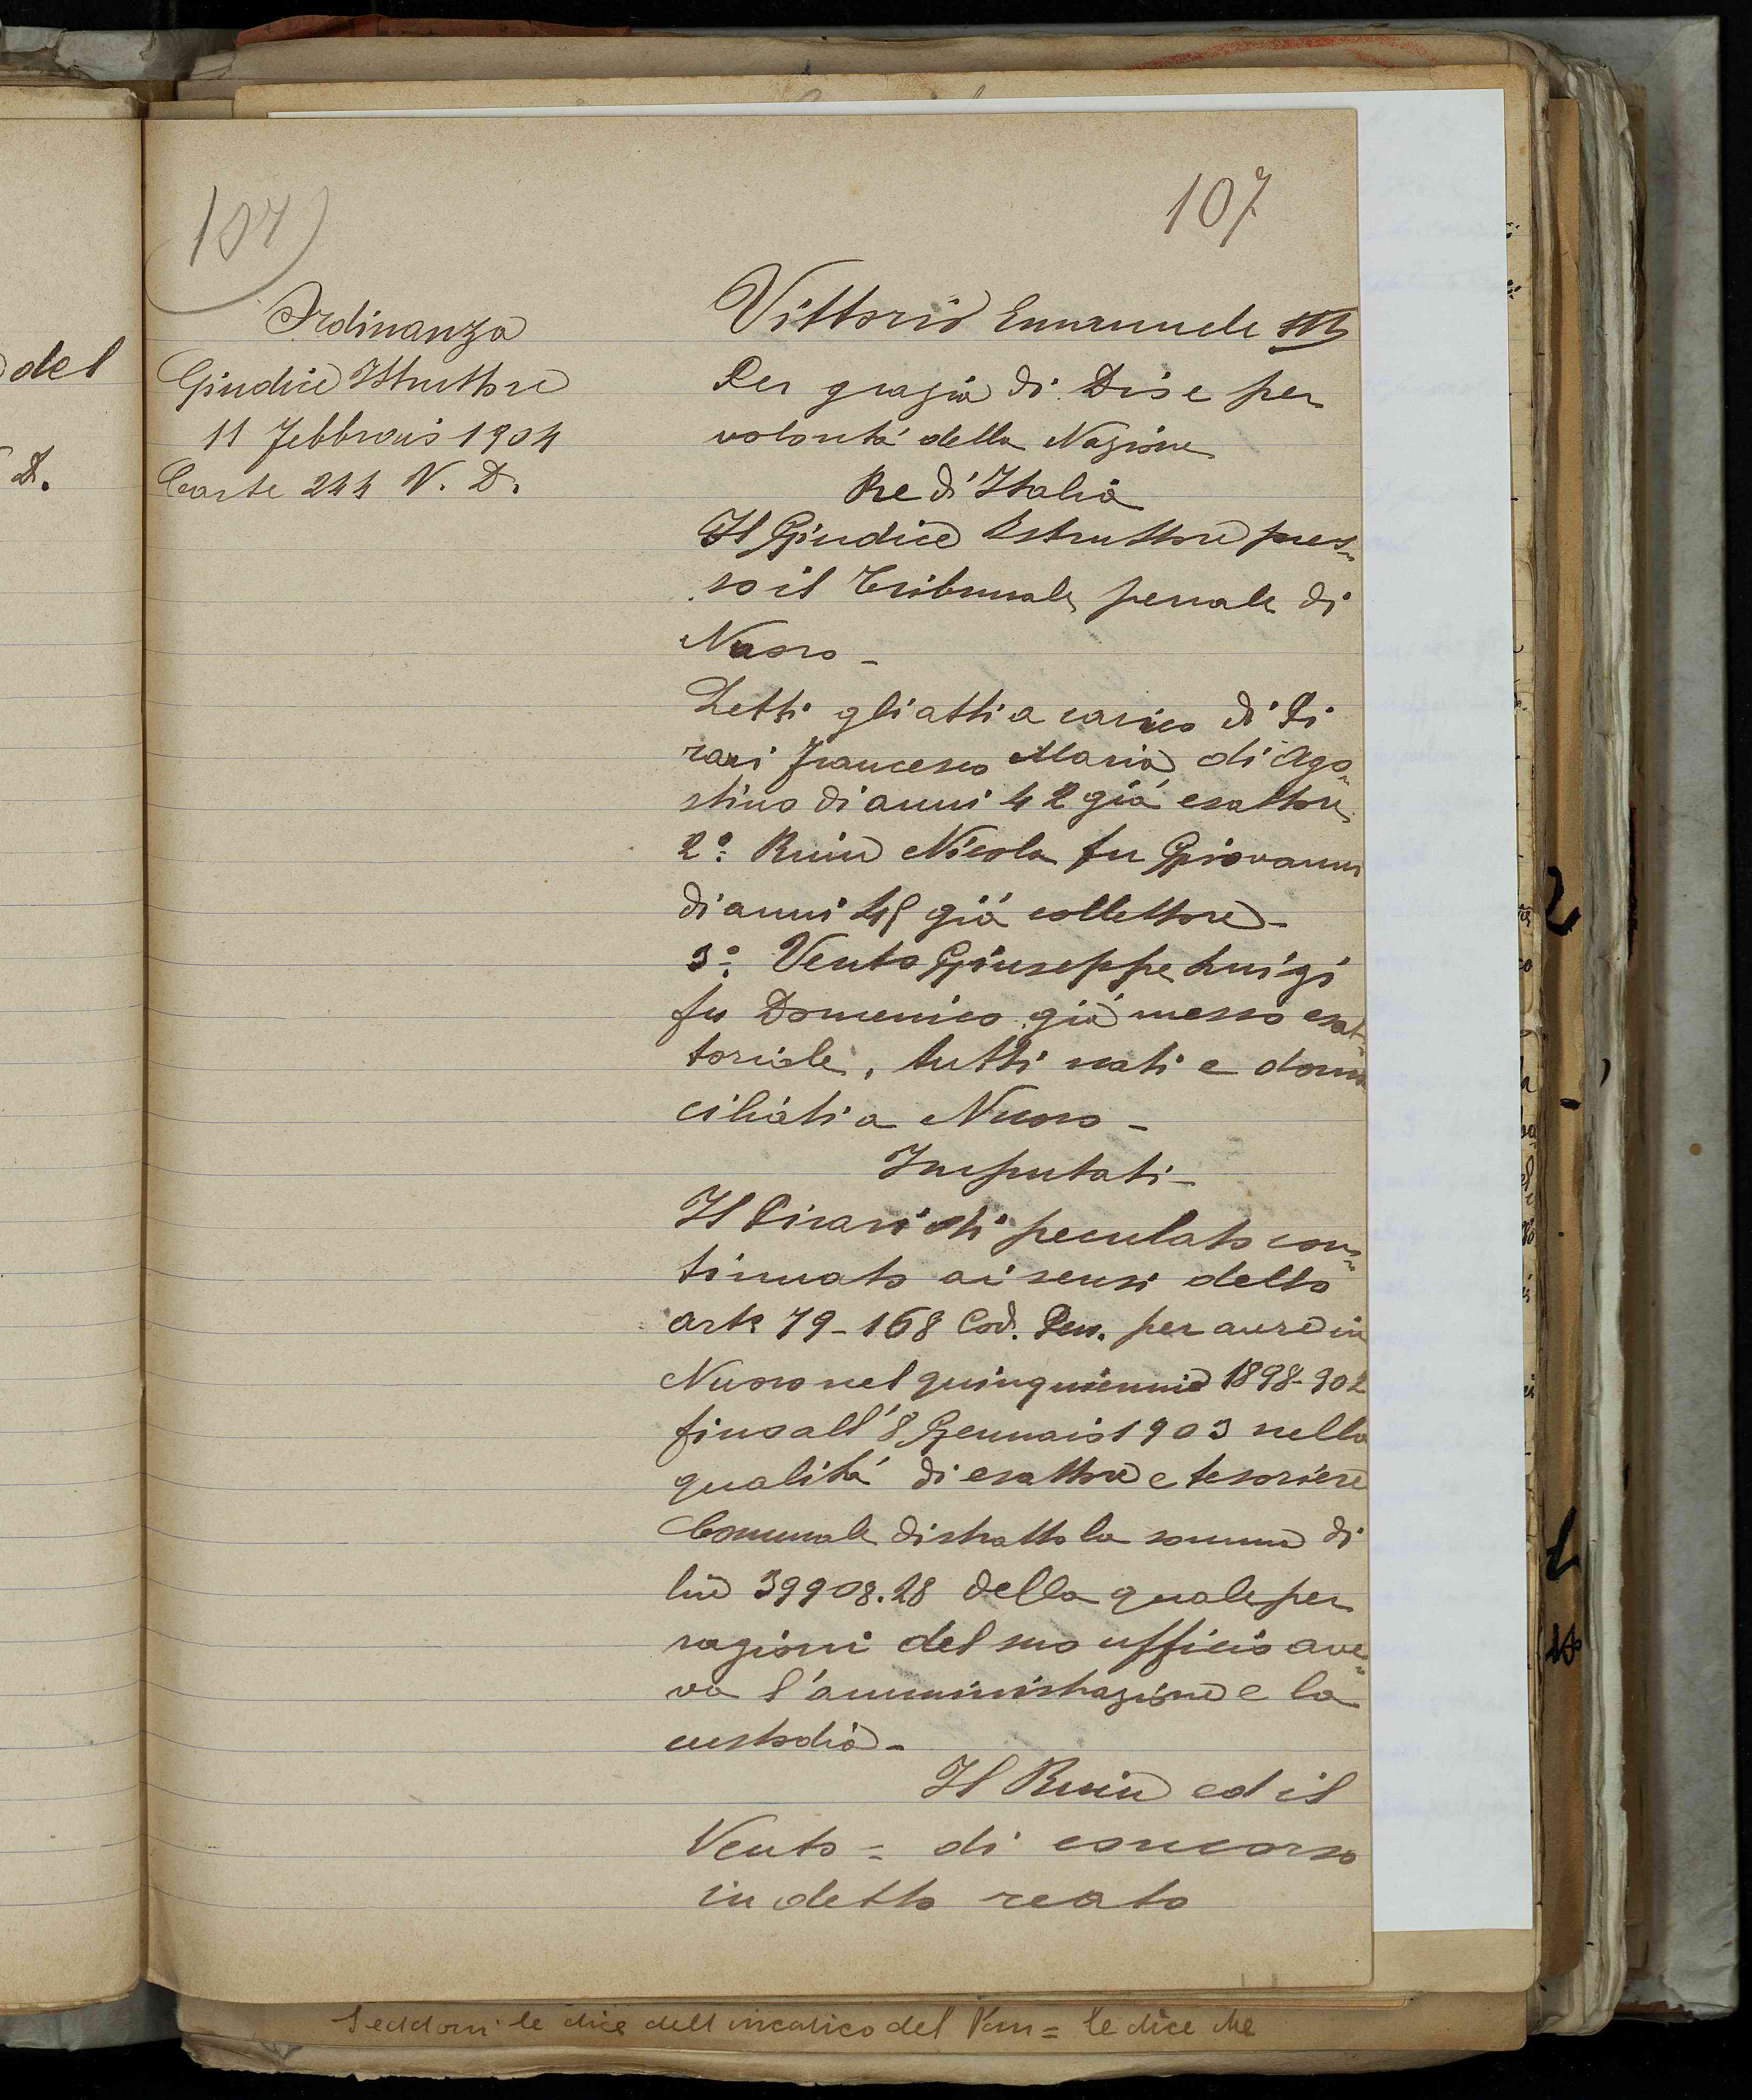 del
D.
107)
107
Ordinanza
Giudice Istruttore
11 Febbraio 1904
Carte 244 N. D.
Vittorio Emanuele III
Per grazia di Dio e per
volontá della Nazione
Re d'Italia
Il Giudice Istruttore pres-
so il Tribunale penale di
Nuoro -
Letti gli atti a carico di Pi
rari Francesco Maria di Ago-
stino di anni 42 giá esattore
2º: Ruiu Nicola fu Giovanni
di anni 45 giá collettore -
3º: Vento Giuseppe Luigi
fu Domenico giá messo esat-
toriale, tutti nati e domi
ciliati a Nuoro -
Imputati -
Il Pirari di peculato con-
tinuato ai sensi dello
art 79 - 168 Cod. Pen. per avere in
Nuoro nel quinquennio 1898-902
fino all' 8 Gennaio 1903 nella
qualitá di esattore e tesoriere
Comunale distratto la somma di
lire 39908.28 della quale per
ragioni del suo ufficio ave-
va l'amministrazione e la
custodia -
Il Ruiu ed il
Vento = di concorso
in detto reato
le dice dell incarico del = le dice che